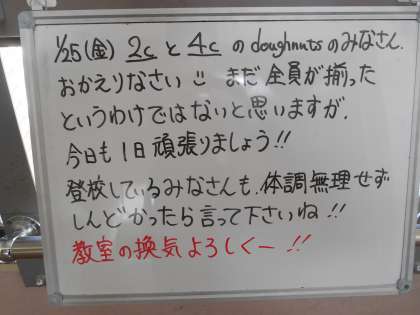 1/25(金) 2c と 4c の doughnutsのみなさん.
おかえりなさい☺ まだ全員が揃った
というわけではないと思いますが、
今日も1日頑張りましょう!!
登校しているみなさんも、体調無理せず
しんどかったら言って下さいね!!
教室の換気よろしくー!!